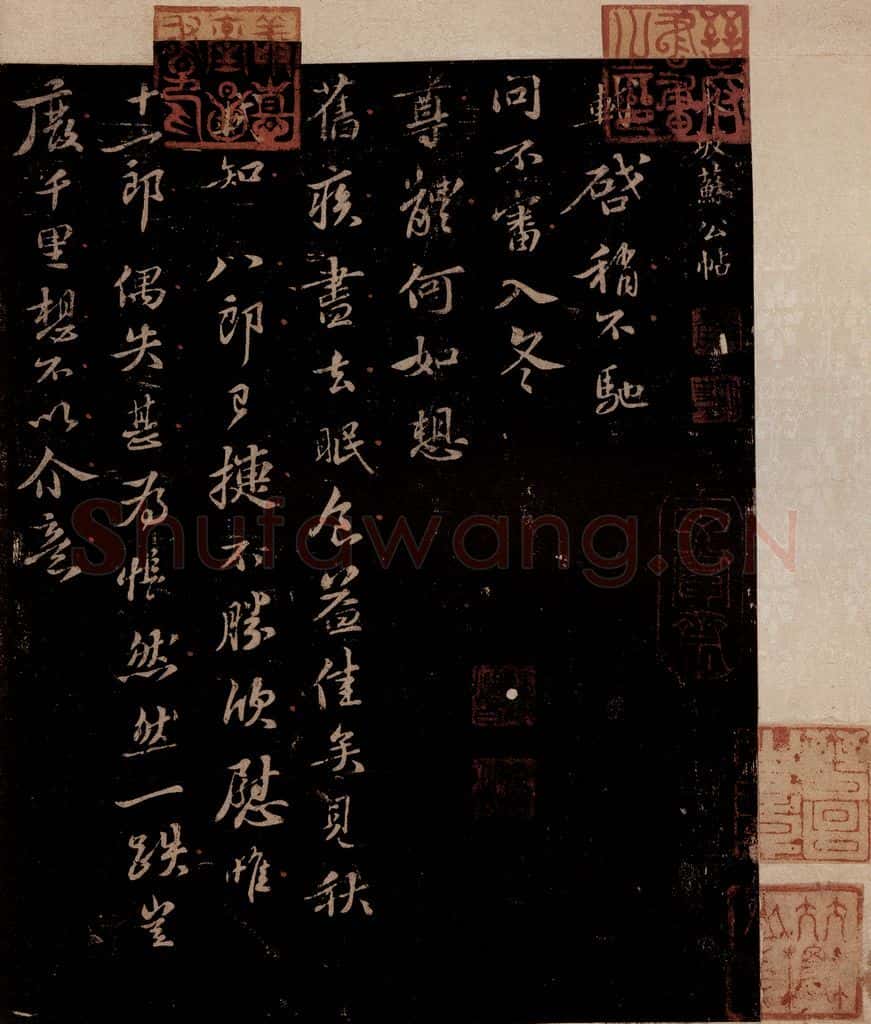 坡蘇公帖
軾啓稍不馳
問不審入冬
尊體何如想
舊疾盡去眠食益佳矣見秋
知 八郎已捷不勝欣慰惟
十一郎偶失甚為悵然然一跌豈
廢千里想不以介意
Shufawang.CN